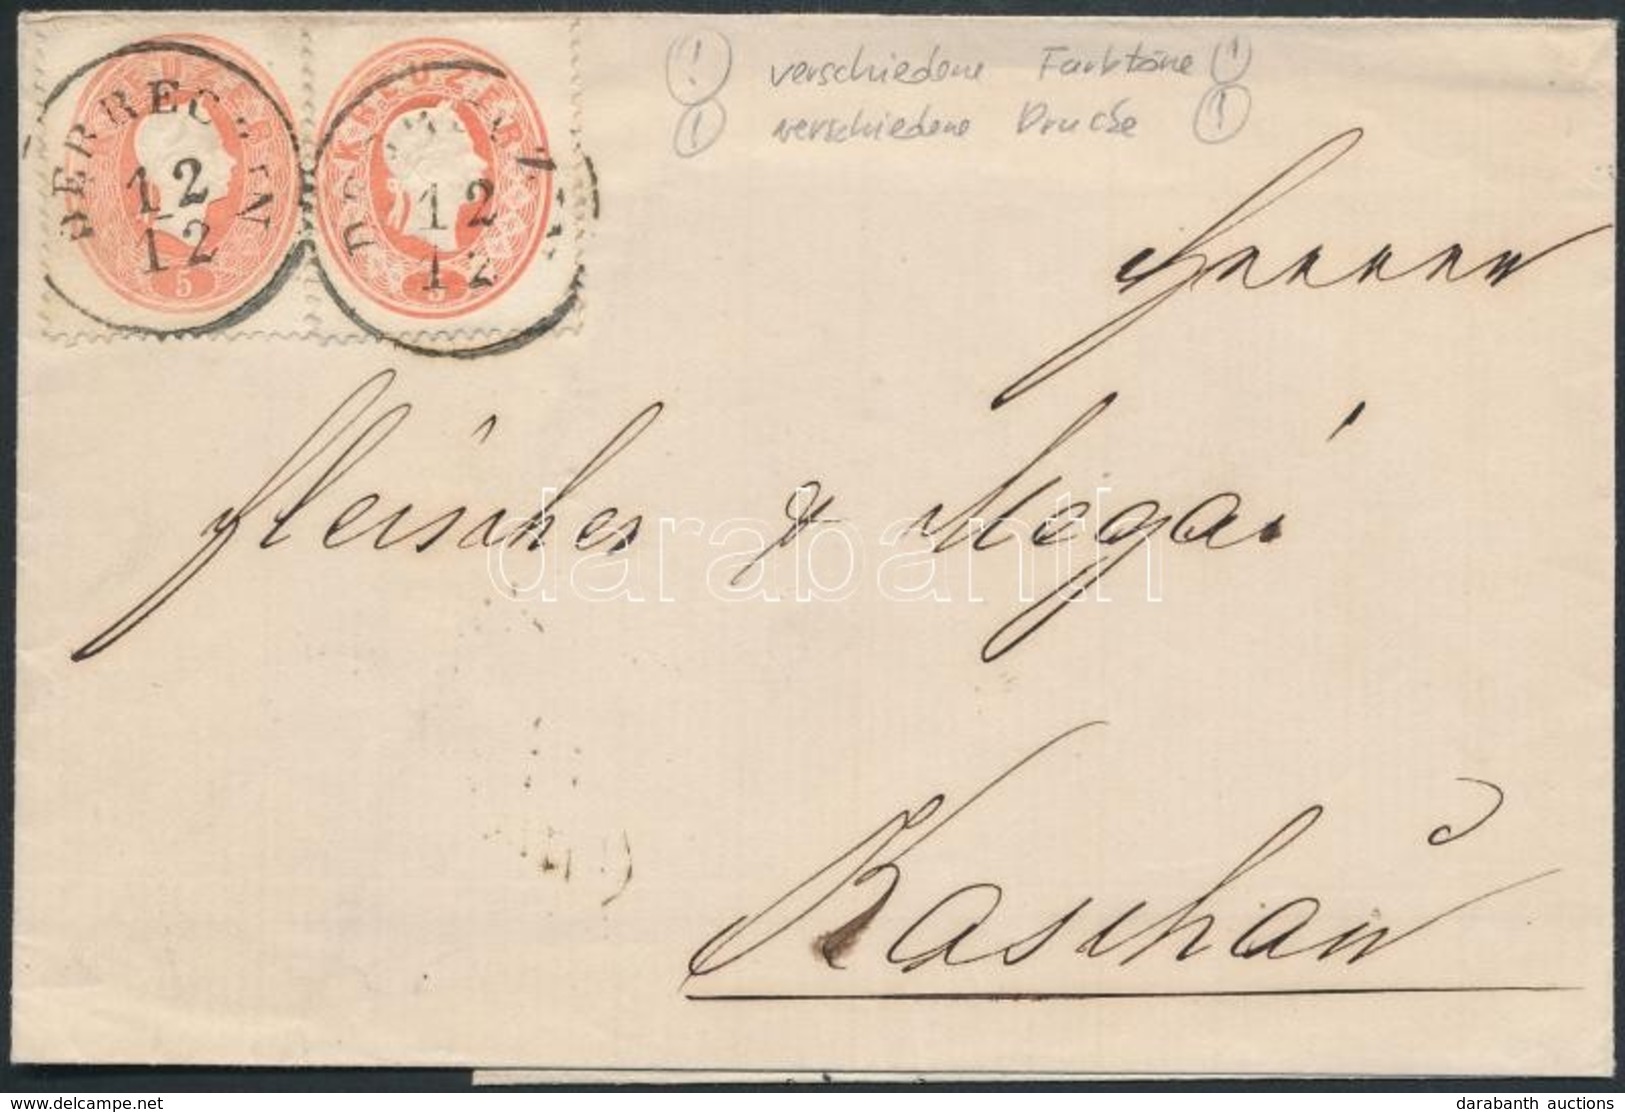 verschiedene Farbtöne
verschiedene Drucke
KREUZER
KREUZER
DEBRECZIN
12
12
12
12
5
5
Herren
Fleischer & Megai
darabanth
Kaschau
delcampe.net
darabanth auctions